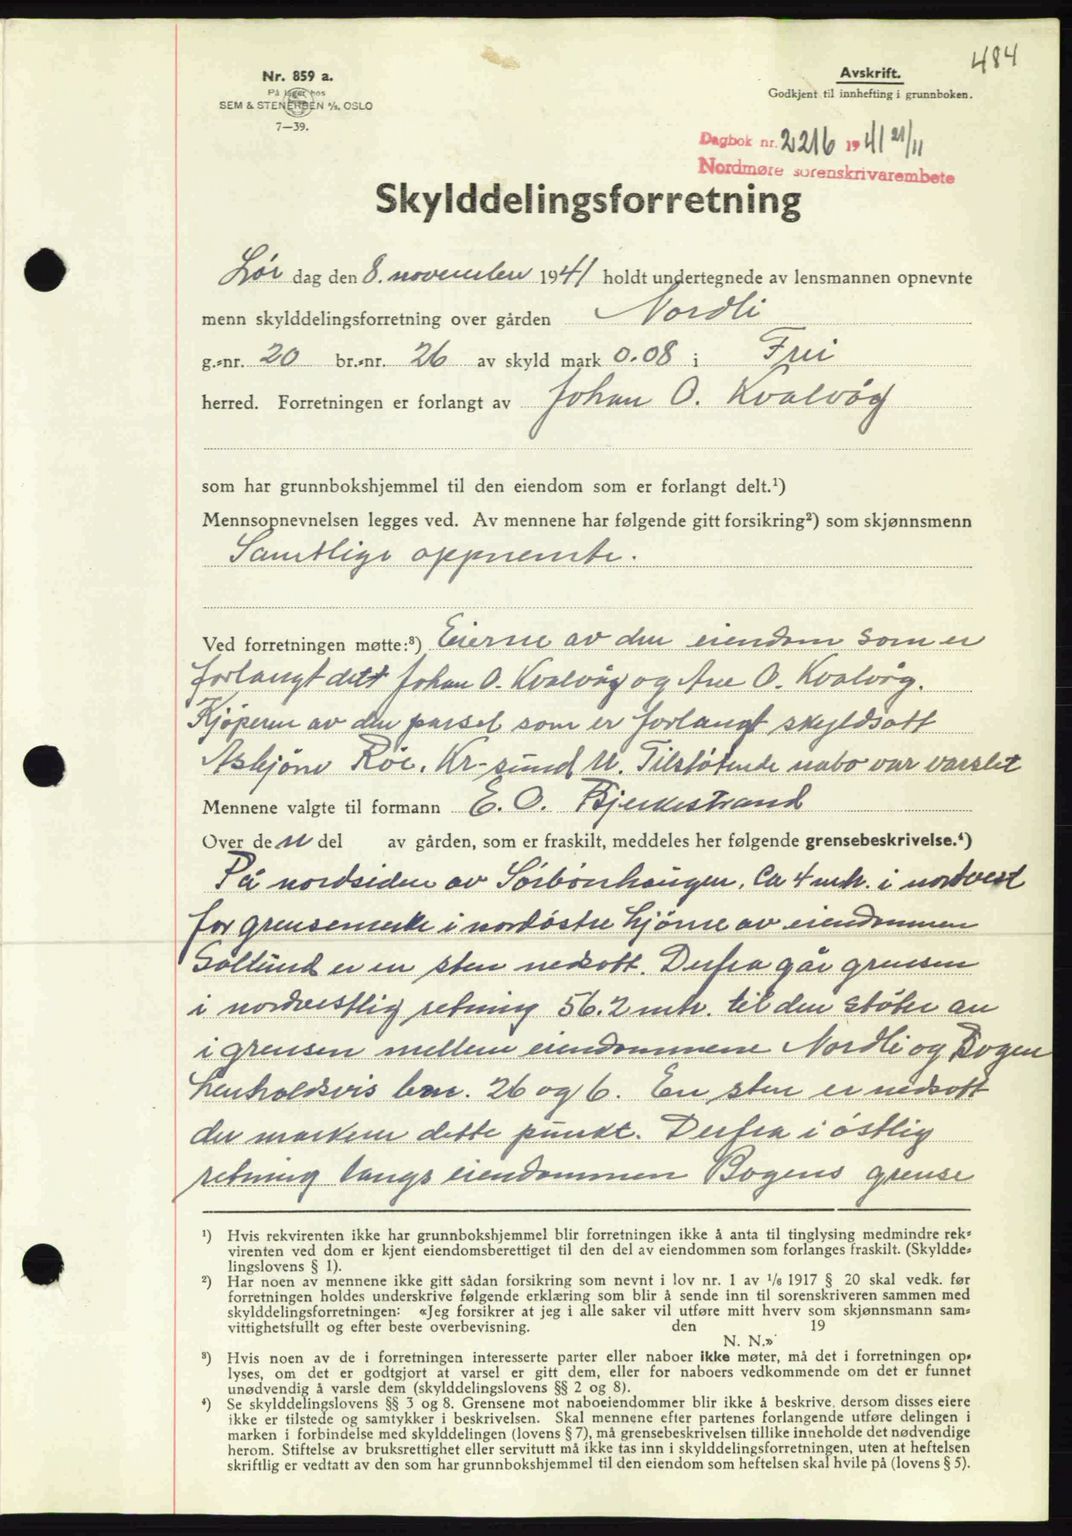 484
Nr. 859 a.
På lager hos
SEM & STENERSEN A/S, OSLO
7—39.
Avskrift.
Godkjent til innhefting i grunnboken.
Dagbok nr. 2216 1941 21/11
Nordmøre sorenskrivarembete
Skylddelingsforretning
Lør dag den 8. november 1941 holdt undertegnede av lensmannen opnevnte
menn skylddelingsforretning over gården Nordli
g.-nr. 20 br.-nr. 26 av skyld mark 0.08 i Frei
herred. Forretningen er forlangt av Johan O. Kvalvåg
som har grunnbokshjemmel til den eiendom som er forlangt delt.¹)
Mennsopnevnelsen legges ved. Av mennene har følgende gitt forsikring²) som skjønnsmenn
Samtlige oppnemte.
Ved forretningen møtte:³) Eierne av den eiendom som er
forlangt delt Johan O. Kvalvåg og Ane O. Kvalvåg.
Kjøperen av den parsel som er forlangt skyldsatt
Asbjørn Røe, Kr-sund N. Tilstøtende nabo var varslet
Mennene valgte til formann E. O. Bjerkestrand
Over den del av gården, som er fraskilt, meddeles her følgende grensebeskrivelse.⁴)
På nordsiden av Sørbønhaugen, ca 4 mtr. i nordvest
for grensemerke i nordøstre hjørne av eiendommen
Soltund er en sten nedsatt. Derfra går grensen
i nordvestlig retning 56.2 mtr. til den støter an
i grensen mellem eiendommene Nordli og Bogen
henholdsvis bnr. 26 og 6. En sten er nedsatt
der merkene dette punkt. Derfra i østlig
retning langs eiendommen Bogens grense
¹) Hvis rekvirenten ikke har grunnbokshjemmel blir forretningen ikke å anta til tinglysing medmindre rek-
virenten ved dom er kjent eiendomsberettiget til den del av eiendommen som forlanges fraskilt. (Skyldde-
lingslovens § 1).
²) Har noen av mennene ikke gitt sådan forsikring som nevnt i lov nr. 1 av 1/6 1917 § 20 skal vedk. før
forretningen holdes underskrive følgende erklæring som blir å sende inn til sorenskriveren sammen med
skylddelingsforretningen: «Jeg forsikrer at jeg i alle saker vil utføre mitt hverv som skjønnsmann sam-
vittighetsfullt og efter beste overbevisning. den 19
N. N.»
³) Hvis noen av de i forretningen interesserte parter eller naboer ikke møter, må det i forretningen op-
lyses, om det er godtgjort at varsel er gitt dem, eller for naboers vedkommende om det er funnet
unødvendig å varsle dem (skylddelingslovens §§ 2 og 8).
⁴) Se skylddelingslovens §§ 3 og 8. Grensene mot naboeiendommer blir ikke å beskrive, dersom disses eiere
ikke er tilstede og samtykker i beskrivelsen. Skal mennene efter partenes forlangende utføre delingen i
marken i forbindelse med skylddelingen (lovens § 7), må grensebeskrivelsen tillike inneholde det nødvendige
herom. Stiftelse av bruksrettighet eller servitutt må ikke tas inn i skylddelingsforretningen, uten at heftelsen
skriftlig er vedtatt av den som har grunnbokshjemmel til den eiendom som heftelsen skal hvile på (lovens § 5).